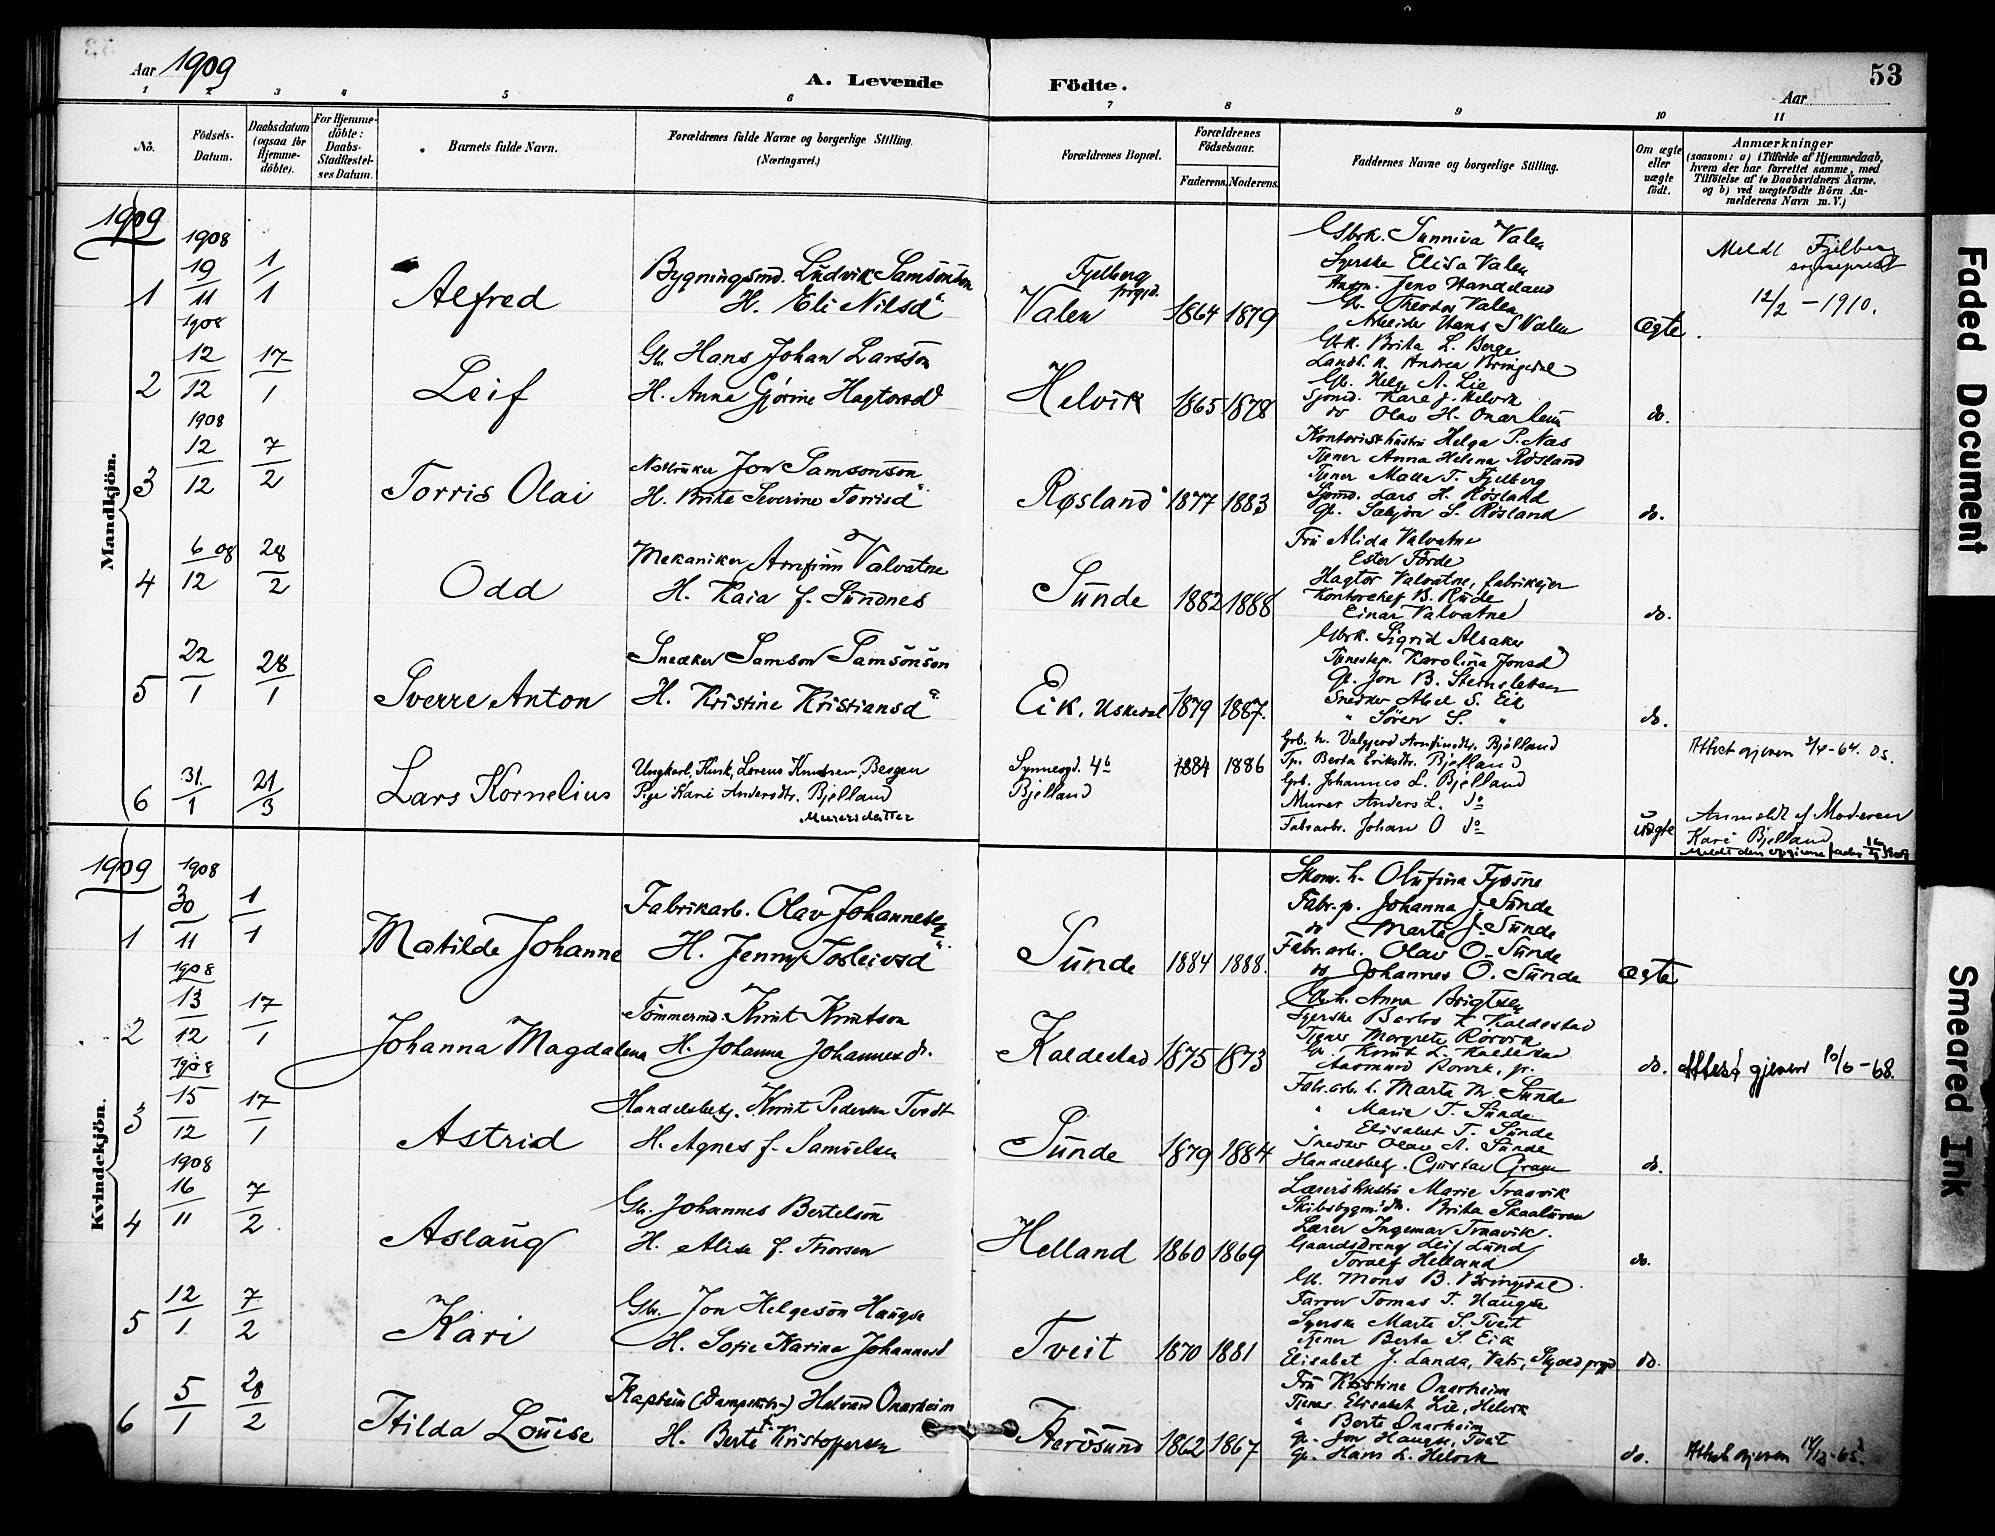 Aar 1909
A. Levende Födte.
53
Aar
1 2 3 4 5 6 7 8 9 10 11
No.
Födsels-Datum.
Daabsdatum (ogsaa for Hjemme-döbte).
For Hjemme-döbte: Daabs-Stadfæstel-ses Datum.
Barnets fulde Navn.
Forældrenes fulde Navne og borgerlige Stilling.
(Næringsvei.)
Forældrenes Bopæl.
Forældrenes Födselsaar.
Faderens. Moderens.
Faddernes Navne og borgerlige Stilling.
Om ægte eller uægte födt.
Anmærkninger
(saasom: a) i Tilfælde af Hjemmedaab, hvem der har forrettet samme, med Tilföielse af to Daabsvidners Navne, og b) ved uægtefödte Börn An-melderens Navn m. V.)
Mandkjön.
1909
1 1908 19/11 1/1 Alfred
Bygningssmd. Ludvik Samsonson
H. Eli Nilsd.
Fjelberg prgjd.
Valen 1864 1879
Gbrk. Sunniva Valen
Syerske Elisa Valen
Jens Handeland
Gb. Theodor Valen
Arbeider Hans S Valen
ægte.
Meldt Fjelberg sogneprest
12/2 - 1910.
2 1908 12/12 17/1 Leif
Gb. Hans Johan Larsson
H. Anna Gjørine Hagtorsd
Helvik 1865 1878
Gbk. Brita L. Berge
Andrea Bringedal
Gb. Helge A. Lie
Sjømd. Kare J. Helvik
do Olav H. Onarheim
do.
3 1908 12/12 7/2 Torris Olai
Notbruker Jon Samsonson
H. Brita Severine Torrisd.
Røsland 1877 1883
Kontoristhustru Helga P. Næs
Tjener Anna Helena Røsland
Tjener Malla T. Fjelberg
Sjømd. Lars H. Røsland
Gb. Sabjørn S. Røsland
do.
4 6/12 08 28/2 Odd
Mekaniker Arnfinn Valvatne
H. Kaia f. Sundnes
Sunde 1882 1888
Fru Alida Valvatne
Ester Førde
Hagtor Valvatne, fabrikejer
Kontorchef B. Rude
Einar Valvatne
do.
5 22/1 28/1 Sverre Anton
Snedker Samson Samsonson
H. Kristine Kristiansd.
Eik, Uskedal 1879 1887.
Gbrk. Sigrid Alsaker
Tjenestep. Karolina Jonsd
Gb. Jon B. Stensletten
Snedker Abel S. Eik
" Sören S. "
do.
6 31/1 21/3 Lars Kornelius
Ungkarl, Kusk, Lorens Knudsen, Bergen
Pige Kari Andersdtr. Bjelland
Murersdatter
Synnesgd. 4b
Bjelland
1884 1886
Grb. h. Valgjerd Arnfinnsdtr. Bjelland
Tp. Berta Eriksdtr. Bjelland
Grb. Johannes L. Bjelland
Murer Anders L. do
Fabrarb. Johan O do
uægte
Attest gjeven 3/4-64. OS.
Anmeldt af Moderen
Kari Bjelland
Meldt den opgivne fader
Kvindekjön.
1909
1 1908 30/11 1/1 Matilde Johanne
Fabrikarb. Olav Johannesen
H. Jenny Tosleivsd.
Sunde 1884 1888.
Skom. h. Olufina Fjøsne
Fabr. p. Johanna J. Sunde
do Marta J. Sunde
Fabr. arb. Olav O. Sunde
do Johannes O. Sunde
ægte
2 1908 13/12 17/1 Johanna Magdalena
Tömmermd. Knut Knutson
H. Johanna Johannesdr.
Kaldestad 1875 1873
Gb. h. Anna Brigtsen
Syerske Barbro K Kaldestad
Tjener Margreta Rörvik
Gb. Knut L. Kaldestad
Aasmund Rörvik, jr.
do.
Attest gjeven 10/6-68.
3 1908 15/12 17/1 Astrid
Handelsbetj. Knut Pedersen Tvedt
H. Agnes f. Samuelsen
Sunde 1879 1884
Fabr. arb. h. Marta M. Sunde
" Marie T. Sunde
" Elisabet T. Sunde
Snedker Olav A. Sunde
Handelsbetj. Gustav Gram
do.
4 1908 16/11 7/2 Aslaug
Gb. Johannes Bertelson
H. Alise f. Thorsen
Helland 1860 1869
Lærershustru Marie Traavik
Skibsbygm. dtr. Brita Skaaluren
Lærer Ingemar Traavik.
Gaardsdreng Leif Lund
Toralf Helland
do.
5 12/1 7/2 Kari
Gb. Jon Helgeson Haugse
H. Sofie Karina Johannesd
Tveit 1870 1881
Gb. Mons B. Bringedal.
Farver Tomas T. Haugse
Syerske Marta S. Tveit
Tjener Berta S. Eik
Elisabet J. Landa, Vats, Skjold prgjd
do.
6 5/1 28/2 Hilda Louise
Kaptein (Dampskibs-) Halvard Onarheim
H. Berta Kristoffersen
Herösund 1862 1867
Fru Kristine Onarheim
Tjener Elisabet Lie, Helvik
" Berta Onarheim
Gb. Jon Haugse, Tveit
Gb. Hans L. Helvik
do.
Attest gjeven
Faded Document
Smeared Ink